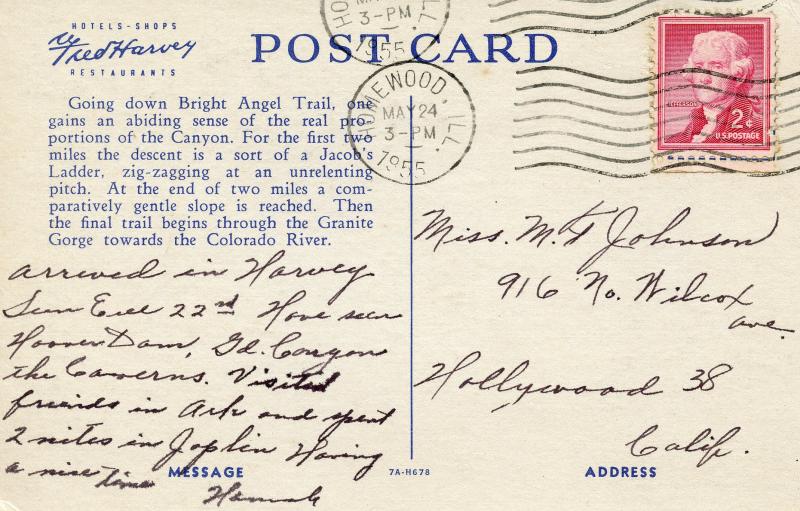 HOTELS - SHOPS
Fred Harvey
RESTAURANTS
POST CARD
Going down Bright Angel Trail, one
gains an abiding sense of the real pro-
portions of the Canyon. For the first two
miles the descent is a sort of a Jacob's
Ladder, zig-zagging at an unrelenting
pitch. At the end of two miles a com-
paratively gentle slope is reached. Then
the final trail begins through the Granite
Gorge towards the Colorado River.
arrived in Harvey
Sun Eve 22nd Have seen
Hoover Dam, Gd. Canyon
the Caverns. Visited
friends in Ark and spent
2 nites in Joplin Having
a nice time
Hannah
MESSAGE
7A-H678
HO
3-PM
1955
ILL.
HOMEWOOD, ILL.
MAY 24
3-PM
1955
JEFFERSON
2¢
U.S. POSTAGE
Miss. M. Johnson
916 No. Wilcox
ave.
Hollywood 38
Calif.
ADDRESS